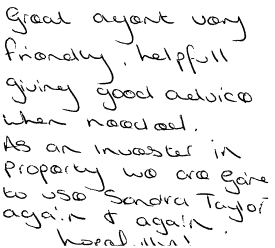 Great agent very
friendly, helpfull
giving good advice
when needed.
As an Investor in
property we are going
to use Sandra Taylor
again & again.
hopefully!